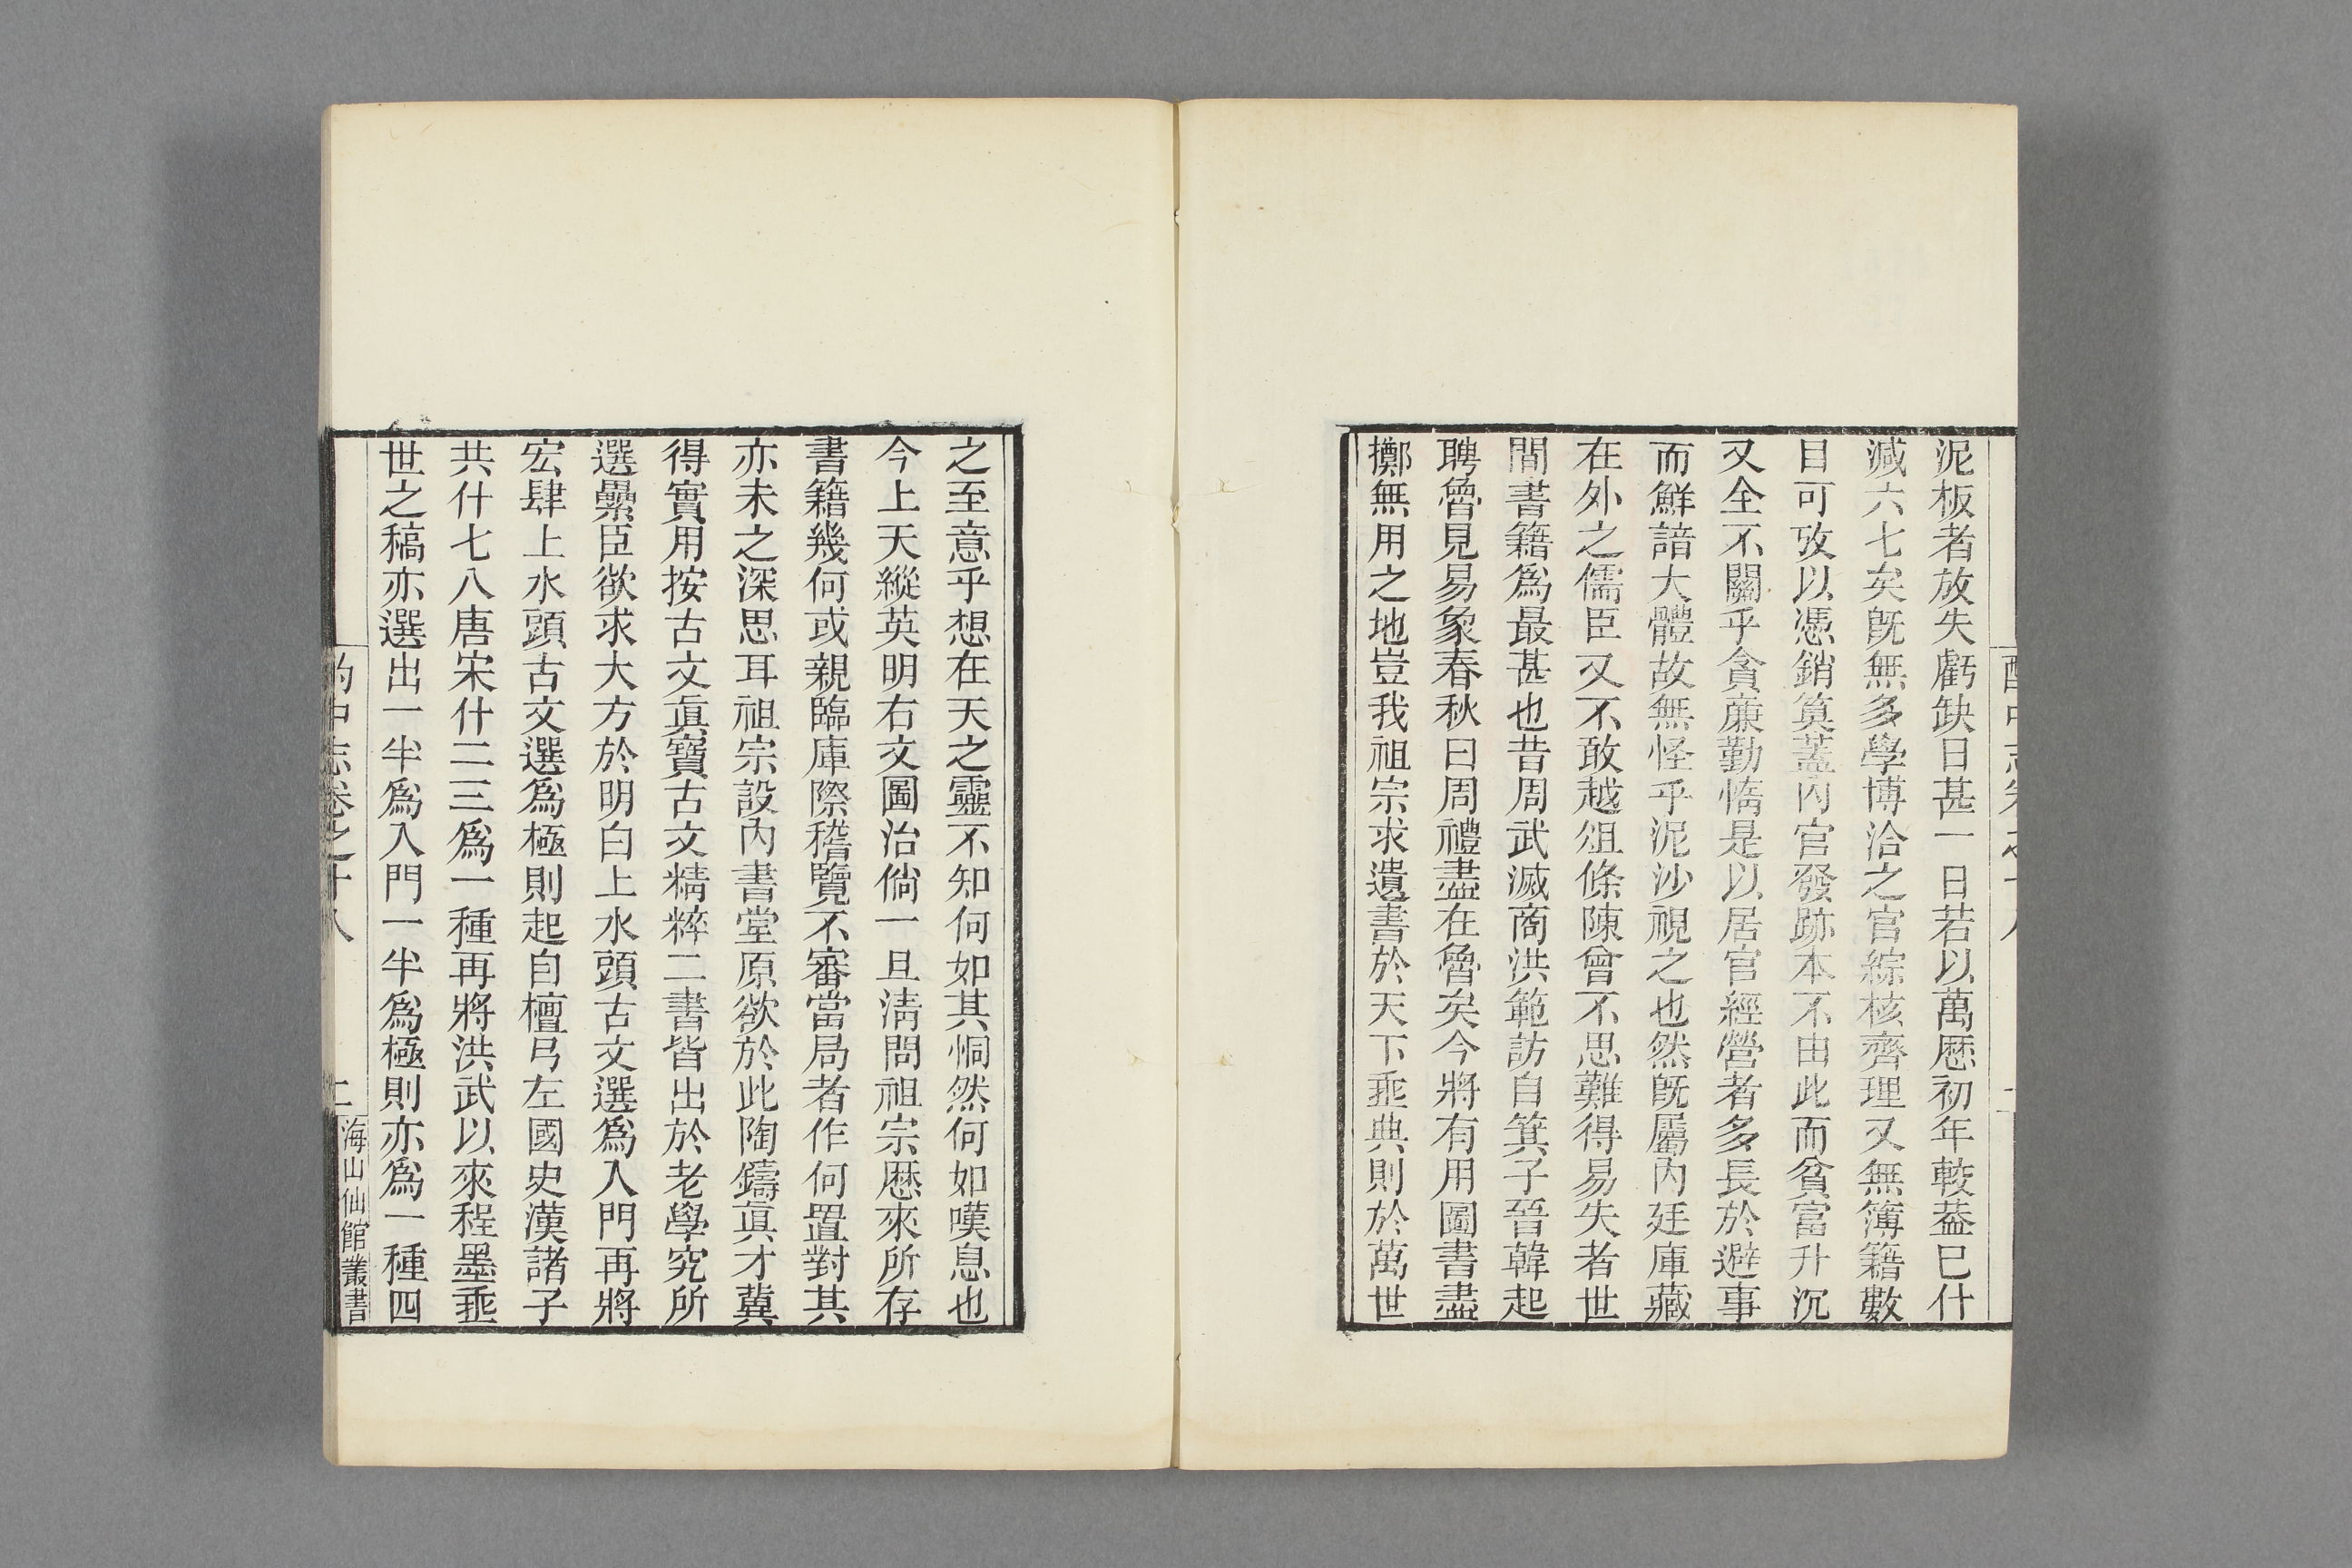 泥板者放失虧缺日甚一日若以萬厯初年較葢已什
減六七矣旣無多學博洽之官綜核齊理又無簿籍數
目可攷以憑銷筭蓋內官發跡本不由此而貧富升沉
又全不關乎貪廉勤惰是以居官經營者多長於避事
而鮮諳大體故無怪乎泥沙視之也然旣屬內廷庫藏
在外之儒臣又不敢越俎條陳曾不思難得易失者世
間書籍爲最甚也昔周武滅商洪範訪自箕子晉韓起
聘魯見易象春秋曰周禮盡在魯矣今將有用圖書盡
擲無用之地豈我祖宗求遺書於天下垂典則於萬世
之至意乎想在天之靈不知何如其恫然何如嘆息也
今上天縱英明右文圖治倘一旦淸問祖宗厯來所存
書籍幾何或親臨庫際稽覽不審當局者作何置對其
亦未之深思耳祖宗設內書堂原欲於此陶鑄眞才冀
得實用按古文眞寶古文精粹二書皆出於老學究所
選纍臣欲求大方於明白上水頭古文選爲入門再將
宏肆上水頭古文選爲極則起自檀弓左國史漢諸子
共什七八唐宋什二三爲一種再將洪武以來程墨垂
世之稿亦選出一半爲入門一半爲極則亦爲一種四
酌中志卷之十八
海山仙館叢書